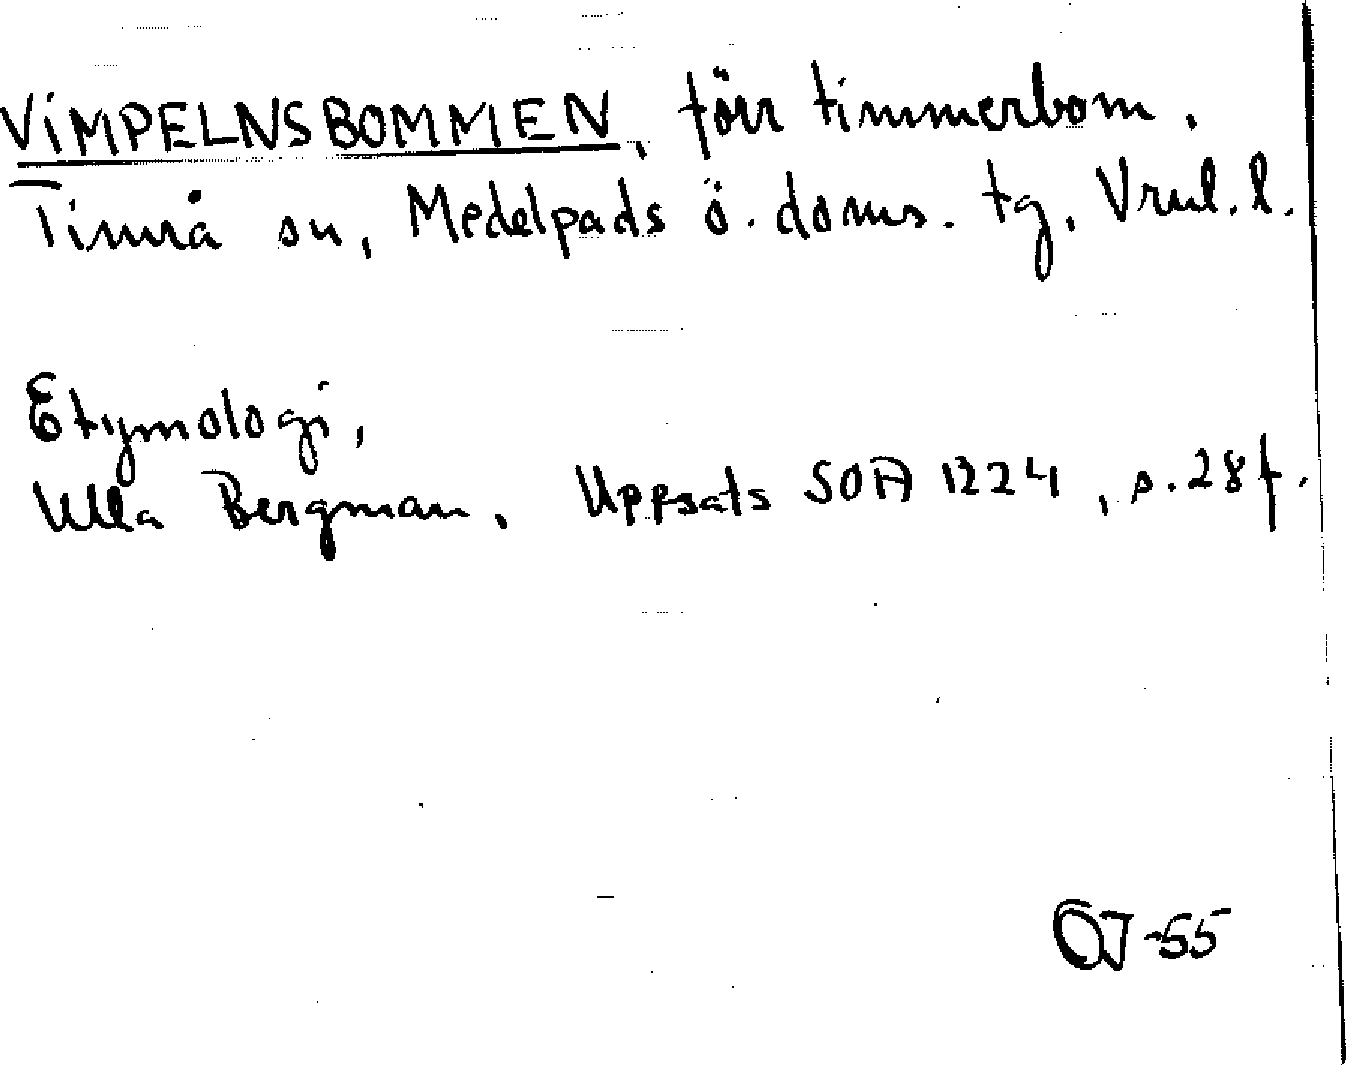 VIMPELNSBOMMEN, förr timmerbom.
Timrå sn, Medelpads ö. doms. tg, Vrnl. l.
Etymologi,
Ulla Bergman. Uppsats SOA 1224, s. 28 f.
OJ -55